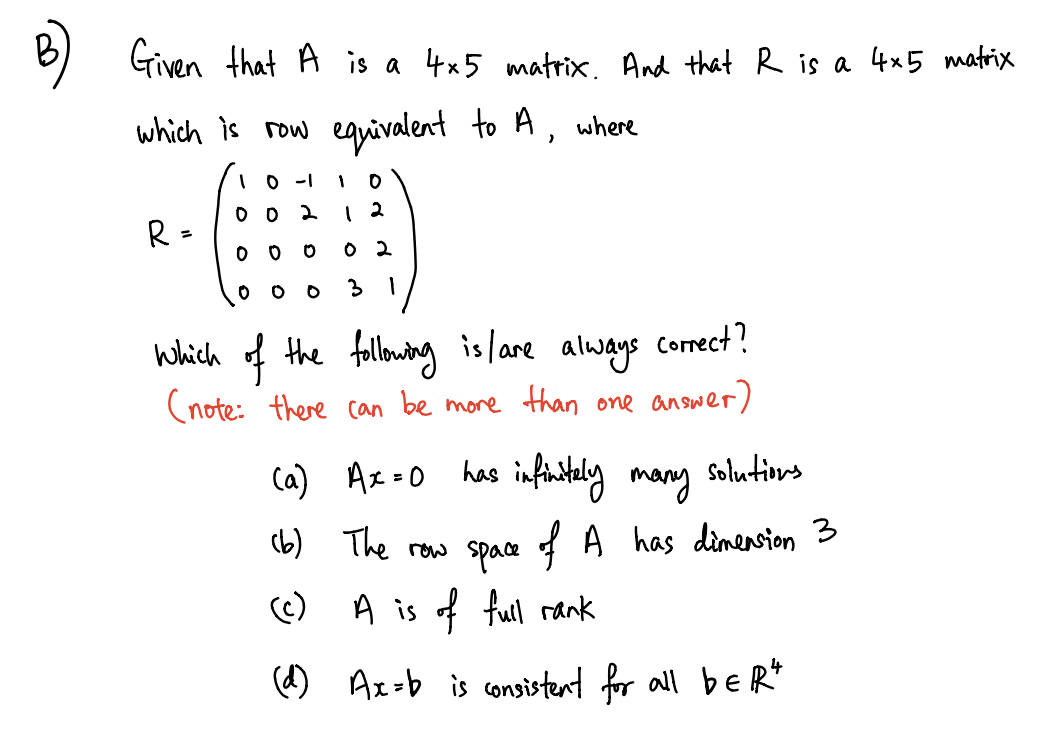 B) Given that A is a 4×5 matrix. And that R is a 4×5 matrix
which is row equivalent to A, where
R = ( 1 0 -1 1 0
0 0 2 1 2
0 0 0 0 2
0 0 0 3 1 )
Which of the following is/are always correct?
(note: there can be more than one answer)
(a) Ax=0 has infinitely many solutions
(b) The row space of A has dimension 3
(c) A is of full rank
(d) Ax=b is consistent for all b∈ℝ⁴